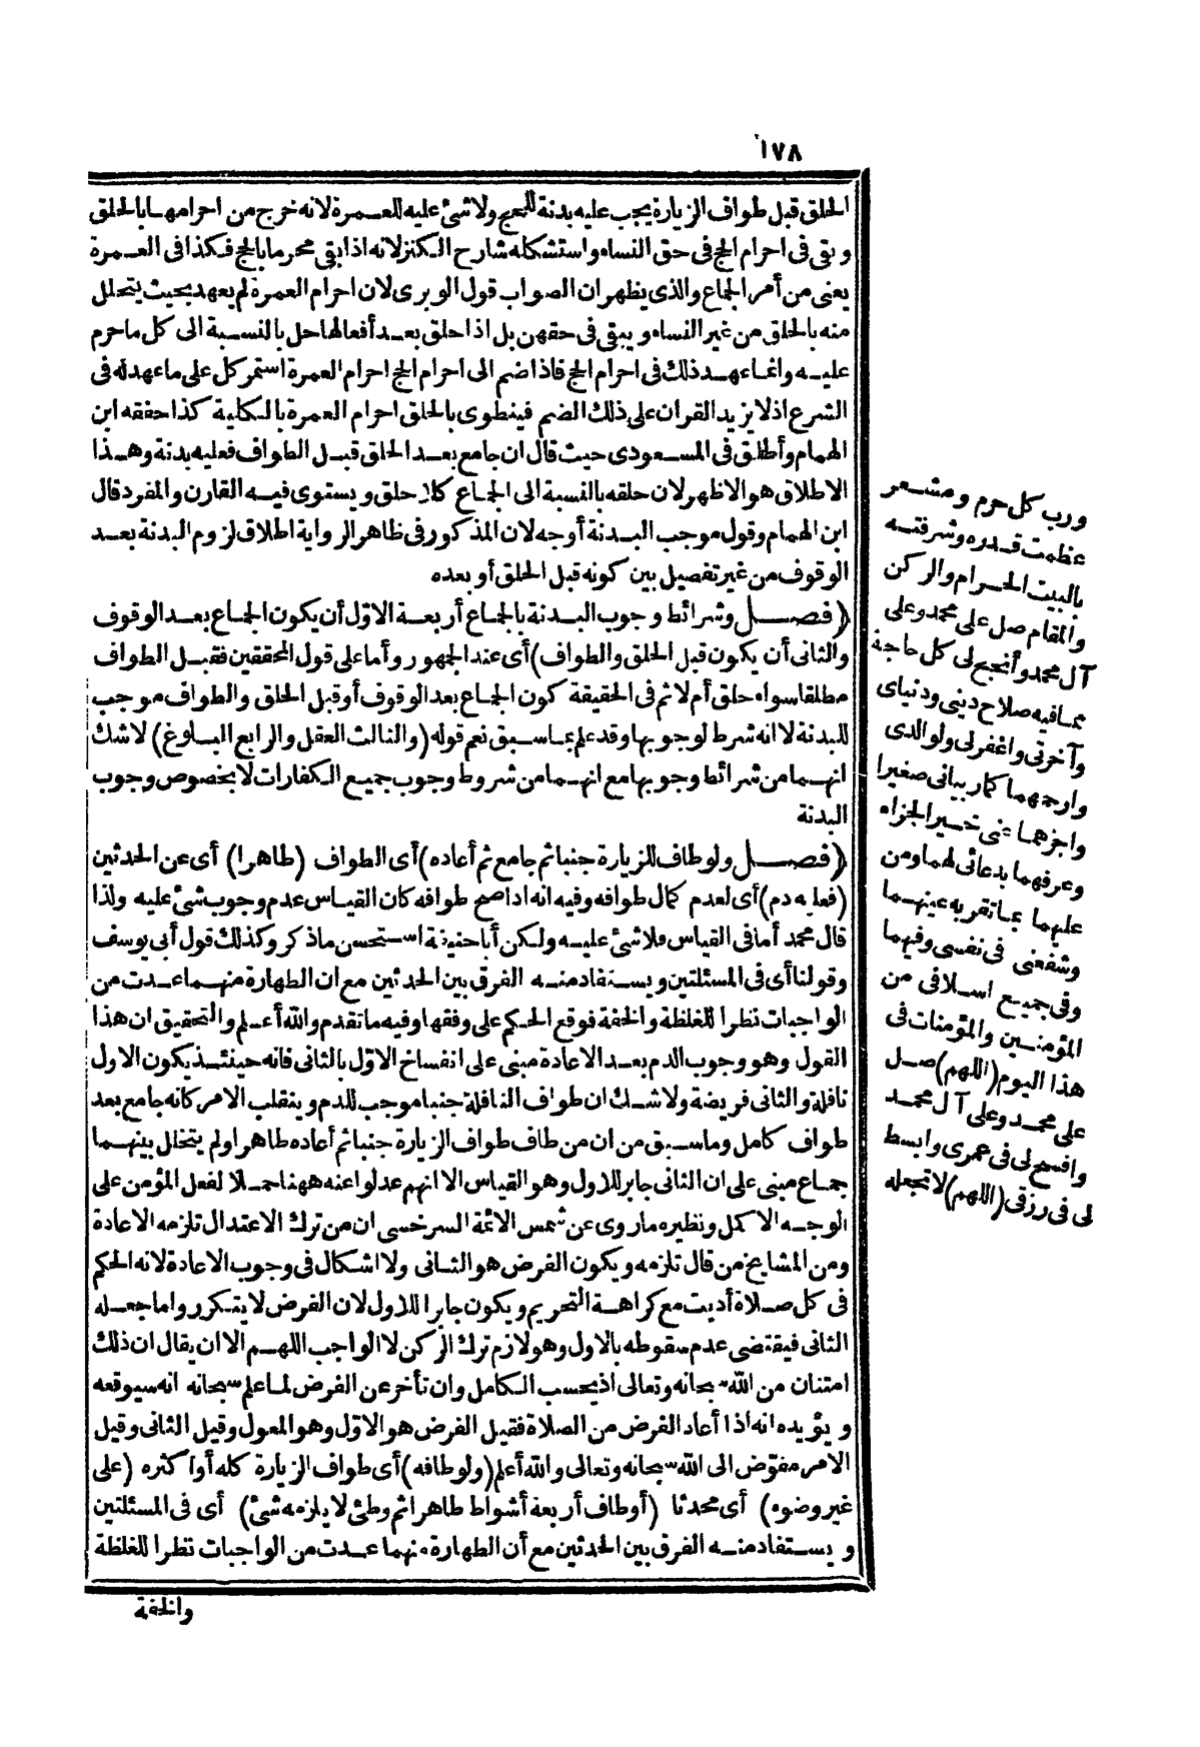 ١٧٨
الحلق قبل طواف الزيارة يجب عليه بدنة للحج ولا شئ عليه للعمرة لانه خرج من احرامها بالحلق
وبقى فى احرام الحج فى حق النساء واستشكله شارح الكنز لانه اذا بقى محرما بالحج فكذا فى العمرة
يعنى من أمر الجماع والذى يظهر ان الصواب قول الوبرى لان احرام العمرة لم يعهد بحيث يتحلل
منه بالحلق من غير النساء ويبقى فى حقهن بل اذا حلق بعد أفعالها حل بالنسبة الى كل ما حرم
عليه وانما عهد ذلك فى احرام الحج فاذا ضم الى احرام الحج احرام العمرة استمر كل على ما عهد له فى
الشرع اذ لا يزيد القران على ذلك الضم فينطوى بالحلق احرام العمرة بالكلية كذا حققه ابن
الهمام وأطلق فى المسعودى حيث قال ان جامع بعد الحلق قبل الطواف فعليه بدنة وهذا
الاطلاق هو الاظهر لان حلقه بالنسبة الى الجماع كلا حلق ويستوى فيه القارن والمفرد قال
ابن الهمام وقول موجب البدنة أوجه لان المذكور فى ظاهر الرواية اطلاق لزوم البدنة بعد
الوقوف من غير تفصيل بين كونه قبل الحلق أو بعده
(فصل وشرائط وجوب البدنة بالجماع أربعة الاول أن يكون الجماع بعد الوقوف
والثانى أن يكون قبل الحلق والطواف) أى عند الجمهور وأما على قول المحققين فقبل الطواف
مطلقا سواء حلق أم لا ثم فى الحقيقة كون الجماع بعد الوقوف أو قبل الحلق والطواف موجب
للبدنة لا انه شرط لوجوبها وقد علم بما سبق نعم قوله (والثالث العقل والرابع البلوغ) لا شك
انهما من شرائط وجوبها مع انهما من شروط وجوب جميع الكفارات لا بخصوص وجوب
البدنة
(فصل ولو طاف للزيارة جنبا ثم جامع ثم أعاده) أى الطواف (طاهرا) أى عن الحدثين
(فعليه دم) أى لعدم كمال طوافه وفيه انه اذا صح طوافه كان القياس عدم وجوب شئ عليه ولذا
قال محمد أما فى القياس فلا شئ عليه ولكن أبا حنيفة استحسن ما ذكر وكذلك قول أبى يوسف
وقولنا أى فى المسئلتين ويستفاد منه الفرق بين الحدثين مع ان الطهارة منهما عدت من
الواجبات نظرا للغلظة والخفة فوقع الحكم على وفقها وفيه ما تقدم والله أعلم والتحقيق ان هذا
القول وهو وجوب الدم بعد الاعادة مبنى على انفساخ الاول بالثانى فانه حينئذ يكون الاول
نافلة والثانى فريضة ولا شك ان طواف النافلة جنبا موجب للدم وينقلب الامر كانه جامع بعد
طواف كامل وما سبق من ان من طاف طواف الزيارة جنبا ثم أعاده طاهرا ولم يتخلل بينهما
جماع مبنى على ان الثانى جابر للاول وهو القياس الا انهم عدلوا عنه ههنا حملا لفعل المؤمن على
الوجه الاكمل ونظيره ما روى عن شمس الائمة السرخسى ان من ترك الاعتدال تلزمه الاعادة
ومن المشايخ من قال تلزمه ويكون الفرض هو الثانى ولا اشكال فى وجوب الاعادة لانه الحكم
فى كل صلاة أديت مع كراهة التحريم ويكون جابرا للاول لان الفرض لا يتكرر واما جعله
الثانى فيقتضى عدم سقوطه بالاول وهو لازم ترك الركن لا الواجب اللهم الا ان يقال ان ذلك
امتنان من الله سبحانه وتعالى اذ يحسب الكامل وان تأخر عن الفرض لما علم سبحانه انه سيوقعه
ويؤيده انه اذا أعاد الفرض من الصلاة فقيل الفرض هو الاول وهو المعول وقيل الثانى وقيل
الامر مفوض الى الله سبحانه وتعالى والله أعلم (ولو طافه) أى طواف الزيارة كله أو أكثره (على
غير وضوء) أى محدثا (أو طاف أربعة أشواط طاهرا ثم وطئ لا يلزمه شئ) أى فى المسئلتين
ويستفاد منه الفرق بين الحدثين مع أن الطهارة منهما عدت من الواجبات نظرا للغلظة
والخفة
ورب كل حرم ومشعر
عظمت قدره وشرفته
بالبيت الحرام والركن
والمقام صل على محمد وعلى
آل محمد وأنجح لى كل حاجة
بما فيه صلاح دينى ودنياى
وآخرتى واغفر لى ولوالدى
وارحمهما كما ربيانى صغيرا
واجزهما عنى خير الجزاء
وعرفهما بدعائى لهما ومن
عليهما بما تقر به عينهما
وشفعنى فى نفسى وفيهما
وفى جميع اسلافى من
المؤمنين والمؤمنات فى
هذا اليوم (اللهم) صل
على محمد وعلى آل محمد
وافسح لى فى عمرى وابسط
لى فى رزقى (اللهم) لا تجعله